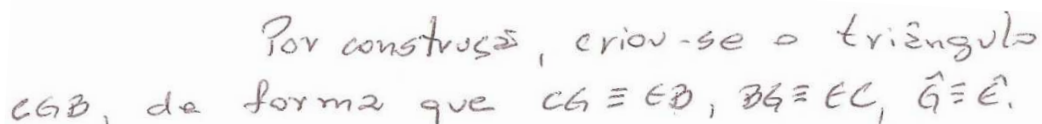 Por construção, criou-se o triângulo
CGB, de forma que CG ≡ EB, BG ≡ EC, Ĝ ≡ Ê.